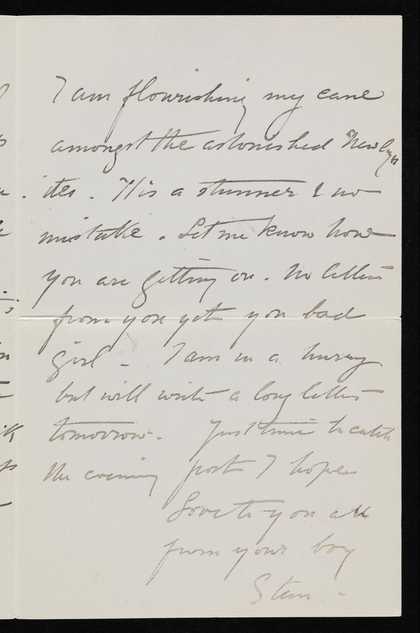 I am flourishing my cane
amongst the astonished "New
ites. 'Tis a stunner & no
mistake. Let me know how
you are getting on. No letter
from you yet you bad
girl - I am in a hurry
but will write a long letter
tomorrow. Just time to catch
the evening post I hope
Love to you all
from your boy